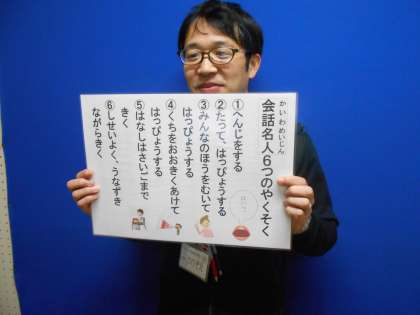 かいわめいじん
会話名人6つのやくそく
①へんじをする
②たって、はっぴょうする
③みんなのほうをむいて
はっぴょうする
④くちをおおきくあけて
はっぴょうする
⑤はなしはさいごまで
きく
⑥しせいよく、うなずき
ながらきく